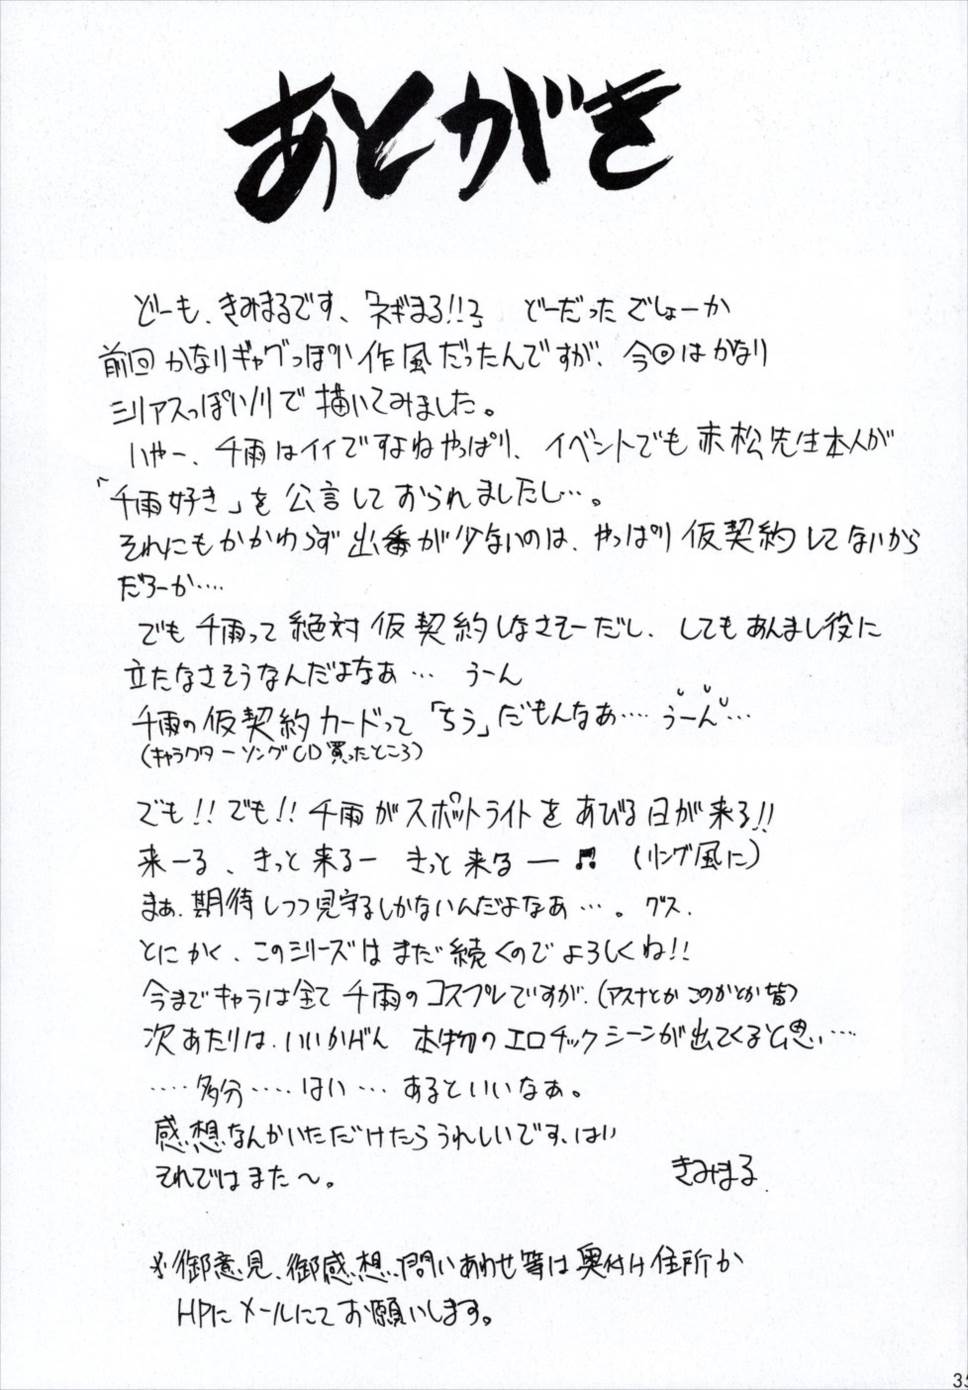 あとがき
どーも、きみまるです、「ネギまる!!」 どーだったでしょーか
前回かなりギャグっぽい作風だったんですが、今回はかなり
シリアスっぽいノリで描いてみました。
いやー、千雨はイイですよねやっぱり、イベントでも赤松先生本人が
「千雨好き」を公言しておられましたし…。
それにもかかわらず出番が少ないのは、やっぱり仮契約してないから
だろーか‥‥
でも千雨って絶対仮契約しなさそーだし、してもあんまし役に
立たなさそうなんだよなぁ… うーん
千雨の仮契約カードって「ちう」だもんなぁ‥‥うーん…
(キャラクターソングCD買ったところ)
でも!!でも!!千雨がスポットライトをあびる日が来る!!
来ーる、きっと来るー きっと来るー♬ (リング風に)
まぁ、期待しつつ見守るしかないんだよなぁ…。グス.
とにかく、このシリーズはまだ続くのでよろしくね!!
今までキャラは全て千雨のコスプレですが、(アスナとかこのかとか皆)
次あたりは、いいかげん 本物のエロチックシーンが出てくると思い‥‥
‥‥‥多分‥‥‥はい…あるといいなぁ。
感想なんかいただけたらうれしいです、はい
それではまた〜。
きみまる.
※御意見、御感想、問いあわせ等は奥付け住所か
HPにメールにてお願いします。
35